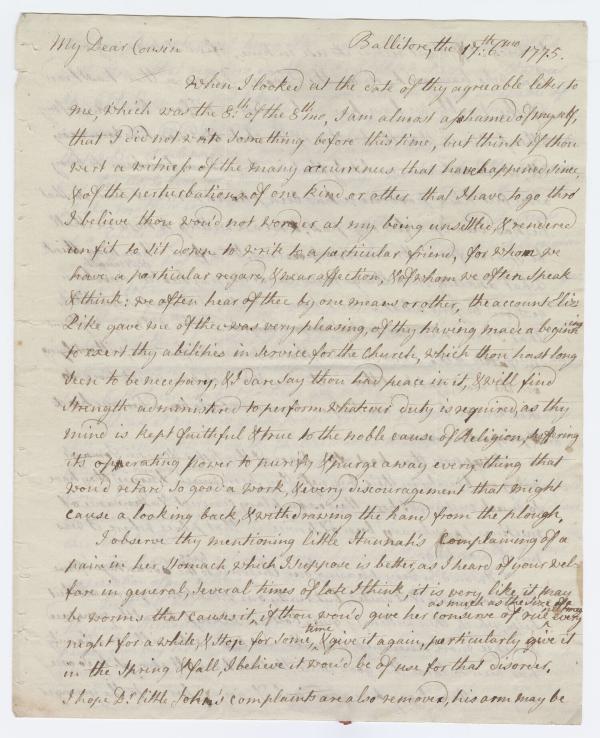 My Dear Cousin Ballitore, the 17th: 6mo 1775.
When I looked at the date of thy agreable letter to
me, which was the 8th of the 5th mo, I am almost ashamed of myself,
that I did not write something before this time, but think if thou
wert a witness of the many occurrences that have happened since,
& of the perturbations of one kind or other that I have to go thro
I believe thou wou'd not wonder at my being unsettled, & rendered
unfit to sit down to write to a particular friend, for whom we
have a particular regard, & near affection, & of whom we often speak
& think: we often hear of thee by one means or other, the account Eliz
Pike gave me of thee was very pleasing, of thy having made a begining
to exert thy abilities in service for the Church, which thou hast long
seen to be necessary, & I dare say thou had peace in it, & will find
strength administred to perform whatever duty is required, as thy
mind is kept faithful & true to the noble cause of Religion, suffering
its operating power to purify & purge away every thing that
wou'd retard so good a work, & every discouragement that might
cause a looking back, & withdrawing the hand from the plough.
I observe thy mentioning little Hannah's complaining of a
pain in her stomach, which I suppose is better, as I heard of your wel-
fare in general, several times of late I think, it is very like it may
be worms that causes it, if thou wou'd give her conserve of rue as much as the size of a nutmeg every
night for a while, & stop for some time, & give it again, particularly give it
in the Spring & fall, I believe it wou'd be of use for that disorder.
I hope Dr. little John's complaints are also removed, his arm may be